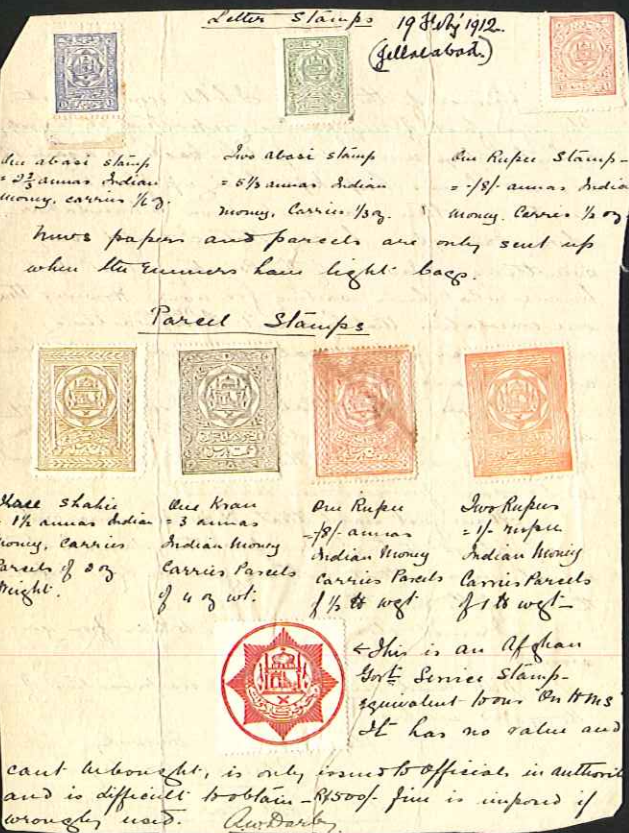 Letter Stamps 19 July 1912.
(Jellalabad.)
One abasi stamp
= 2 2/3 annas Indian
money, carries 1/6 oz.
Two abasi stamp
= 5 1/3 annas Indian
money, Carries 1/3 oz.
One Rupee Stamp -
= -/8/- annas India
money. Carries 1/2 oz
News papers and parcels are only sent up
when the runners have light bags.
Parcel Stamps
Shahie
= 1 1/2 annas Indian
money, carries
Parcels of 2 oz
Weight.
One Kran
= 3 annas
Indian Money
Carries Parcels
of 4 oz wt.
One Rupee
= -/8/- annas
Indian Money
carries Parcels
of 1/2 lb wgt
Two Rupees
= 1/- rupee
Indian Money
Carries Parcels
of 1 lb wgt -
← This is an Afghan
Govt. Service Stamp -
equivalent to our "On HMS"
It has no value and
cant be bought, is only issued to officials in authorit
and is difficult to obtain - Rs500/- fine is imposed if
wrongly used. A.W. Darby